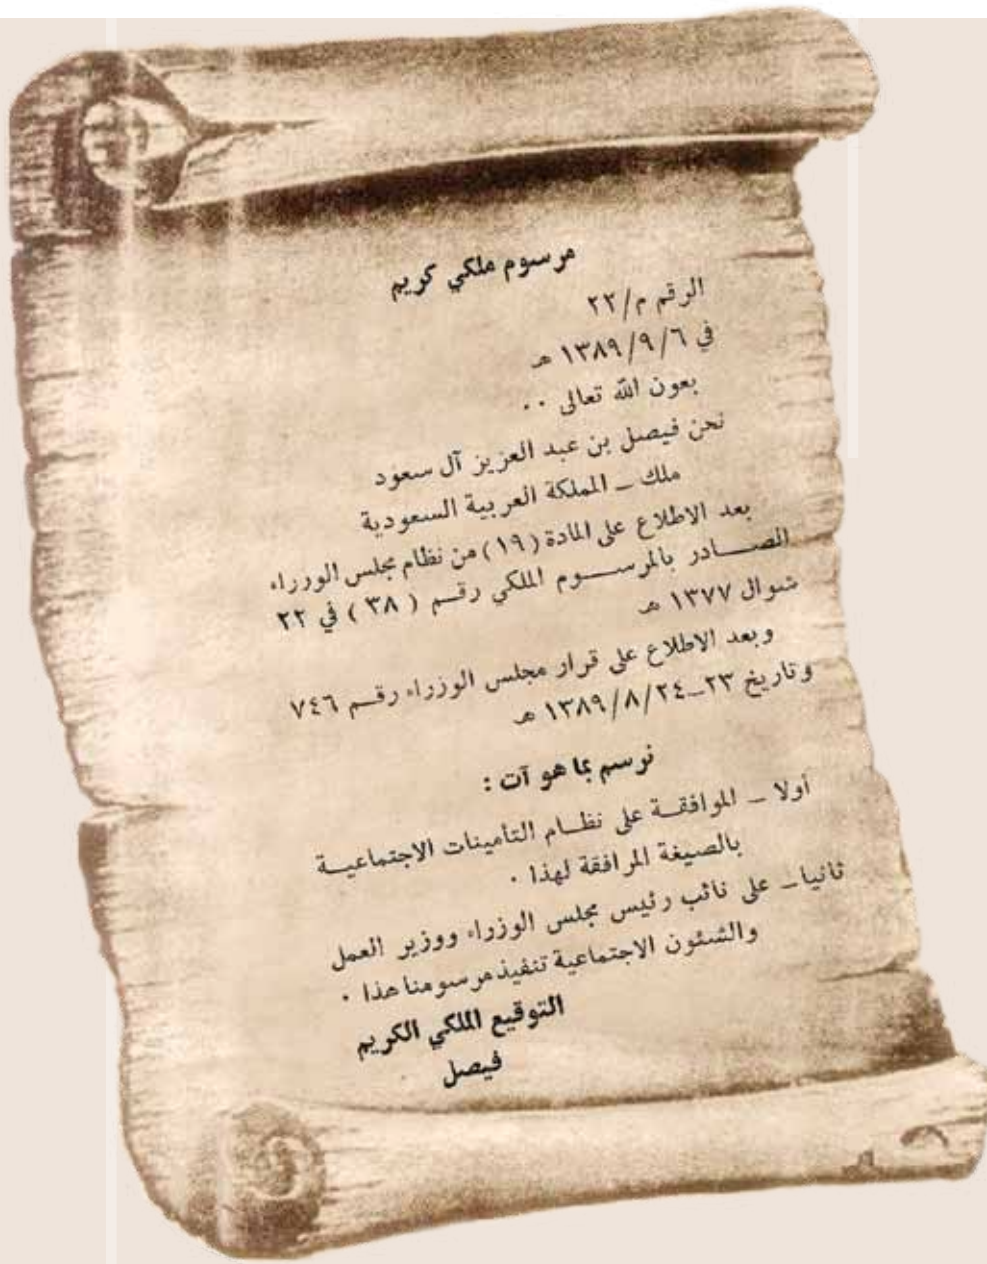 مرسوم ملكي كريم
الرقم م/٢٢
في ١٣٨٩/٩/٦ هـ
بعون الله تعالى ٠٠
نحن فيصل بن عبد العزيز آل سعود
ملك – المملكة العربية السعودية
بعد الاطلاع على المادة (١٩) من نظام مجلس الوزراء
الصادر بالمرسوم الملكي رقم (٣٨) في ٢٢
شوال ١٣٧٧ هـ
وبعد الاطلاع على قرار مجلس الوزراء رقم ٧٤٦
وتاريخ ٢٣–١٣٨٩/٨/٢٤ هـ
نرسم بما هو آت :
أولا – الموافقة على نظام التأمينات الاجتماعية
بالصيغة المرافقة لهذا ٠
ثانيا – على نائب رئيس مجلس الوزراء ووزير العمل
والشئون الاجتماعية تنفيذ مرسومنا هذا ٠
التوقيع الملكي الكريم
فيصل